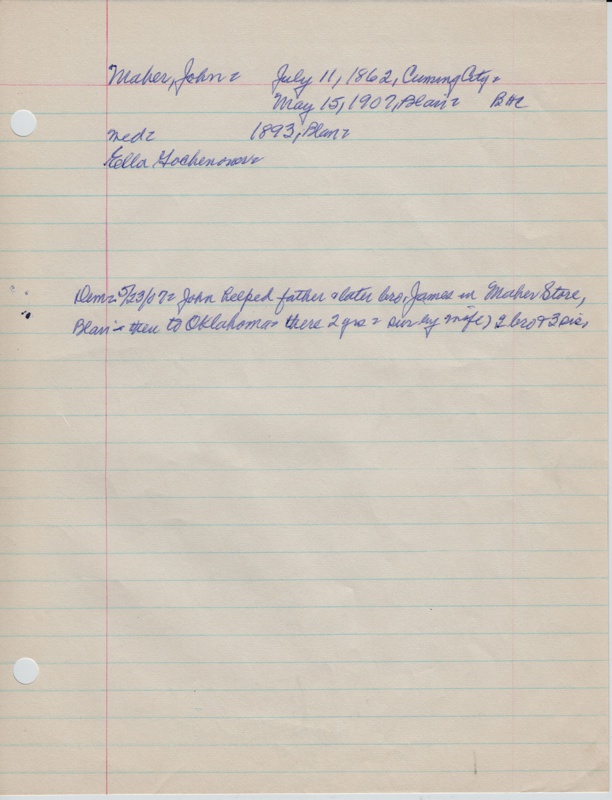 Maher, John = July 11, 1862, Cuming City =
May 15, 1907, Blair = BHC
med = 1893, Blair =
Ella
Dem = 5/23/07 = John helped father & later bro, James in Maher Store,
Blair = then to Oklahoma = there 2 yrs = sur by wife, 2 bro & 3 sis,